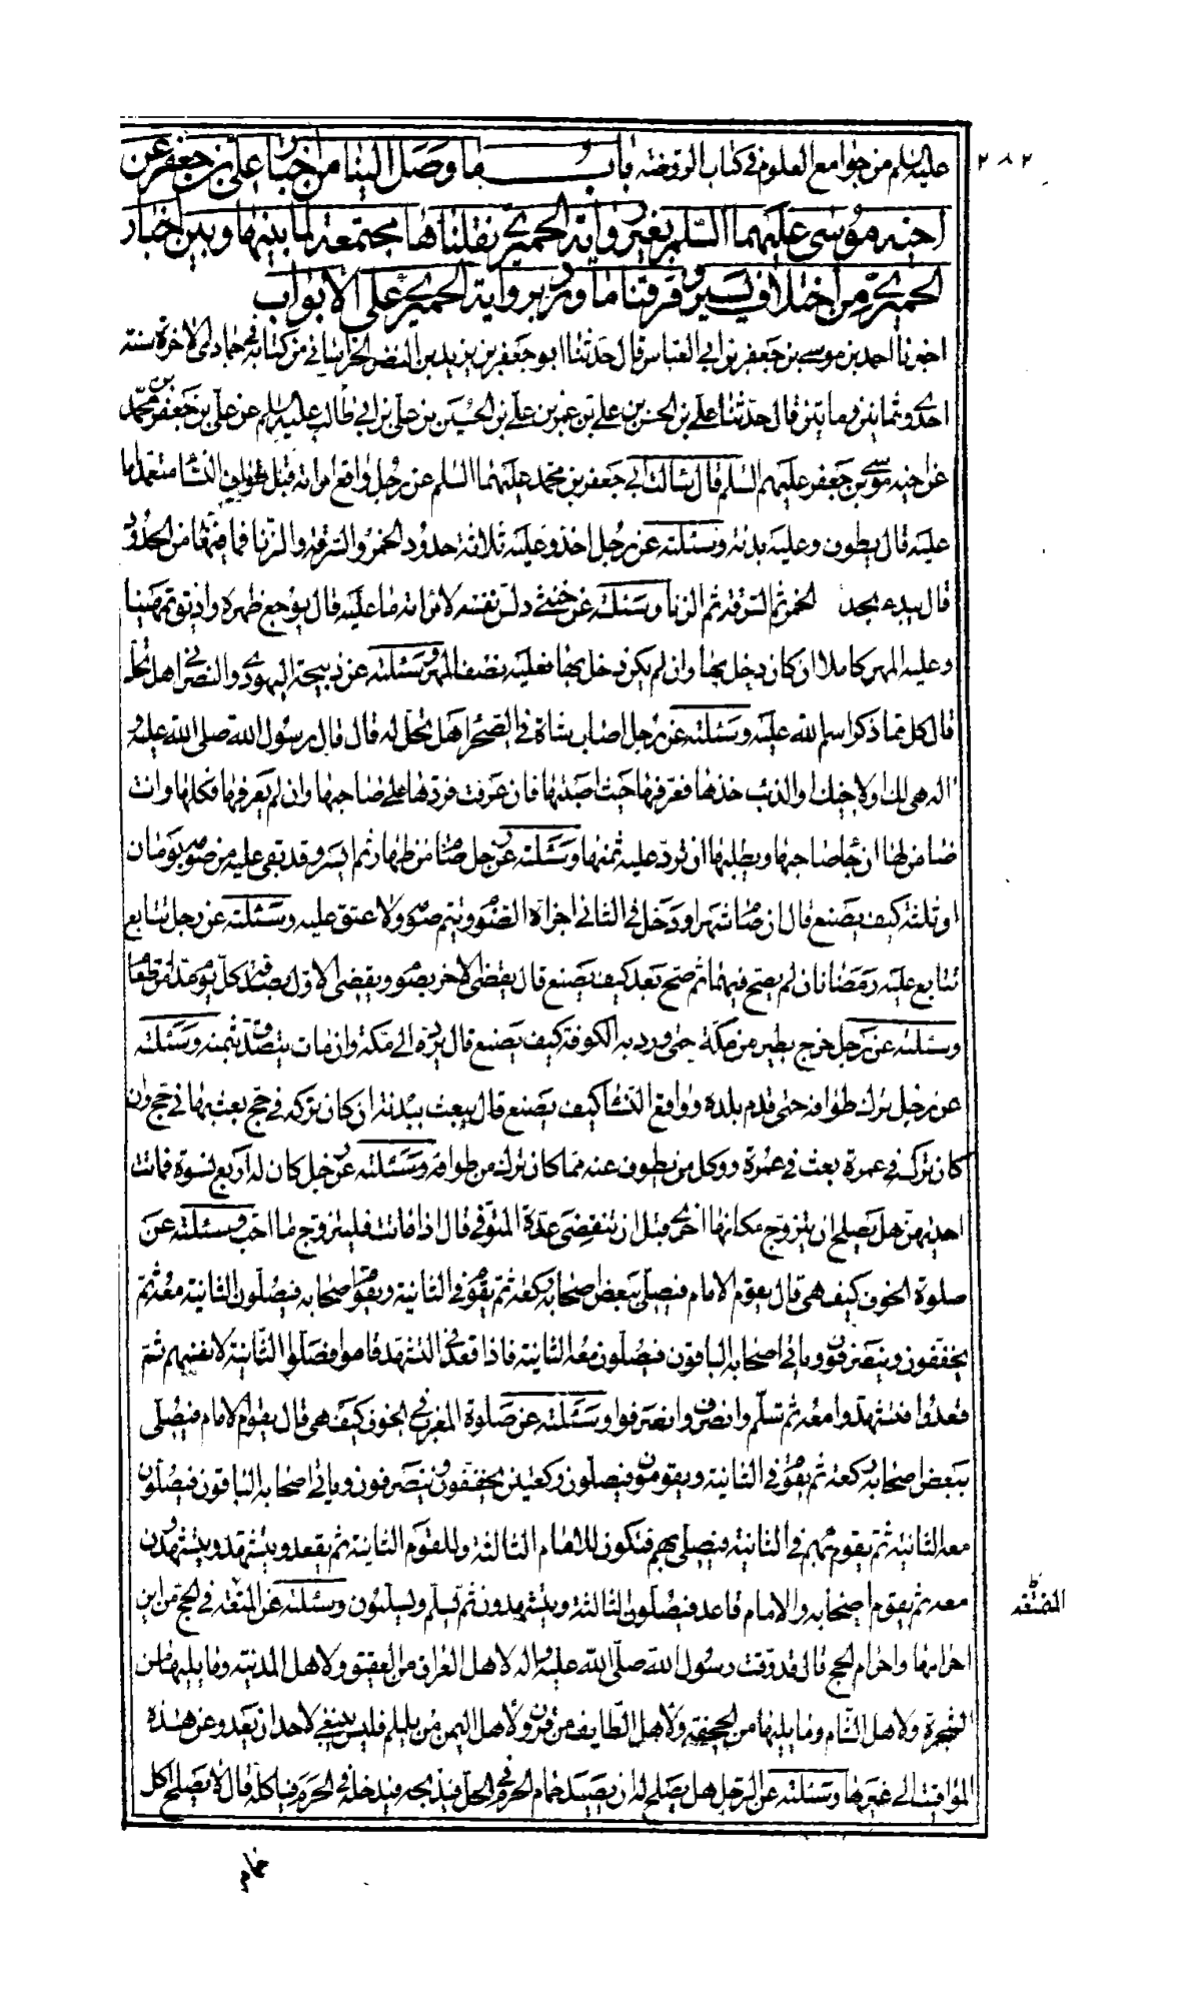 ٢٨٢
عليه السلم من جوامع العلوم في كتاب الروضة باب ما وصل الينا من اخبار علي بن جعفر عن
اخيه موسى عليهما السلم بغير رواية الحميري نقلناها مجتمعة لما بينها وبين اخبار
الحميري من اختلاف يسير وفرقنا ما ورد برواية الحميري على الابواب
اخبرنا احمد بن موسى بن جعفر بن ابي العباس قال حدثنا ابو جعفر بن يزيد بن النضر الخراساني من كتابه في جمادى الاخرة سنة
احدى وثمانين ومائتين قال حدثنا علي بن الحسن بن علي بن عمر بن علي بن الحسين بن علي بن ابي طالب عليه السلم عن علي بن جعفر بن محمد
عن اخيه موسى بن جعفر عليهم السلم قال سالت ابي جعفر بن محمد عليهما السلم عن رجل واقع امراته قبل طواف النسا متعمدا ما
عليه قال يطوف وعليه بدنة وسئلته عن رجل اخذ وعليه ثلاثة حدود الخمر والسرقة والزنا فما فيها من الحدود
قال يبدء بحد الخمر ثم السرقة ثم الزنا وسئلته عن خنثى دلس نفسه لامراته ما عليه قال يوجع ظهره واذيق تمهينا
وعليه المهر كاملا ان كان دخل بها وان لم يكن دخل بها فعليه نصف المهر وسئلته عن ذبيحة اليهودي والنصراني هل تحل
قال كل مما ذكر اسم الله عليه وسئلته عن رجل اصاب شاة في الصحرا هل تحل له قال قال رسول الله صلى الله عليه و
اله هي لك او لاخيك او للذئب خذها فعرفها حيث اصبتها فان عرفت فردها على صاحبها وان لم تعرفها فكلها وانت
ضامن لها ان جا صاحبها ويطلبها ان ترد عليه ثمنها وسئلته عن رجل صام من ظهار ثم ايسر وقد بقي عليه من صومه يومان
او ثلثة كيف يصنع قال ان صام شهرا ودخل في الثاني اجزاه الصوم ويتم صومه ولا عتق عليه وسئلته عن رجل تتابع
تتابع عليه رمضانان لم يصح فيهما ثم صح بعد كيف يصنع قال يقضي الاخر بصوم ويقضي الاول بصدقة كل يوم مد من طعام
وسئلته عن رجل خرج بطير من مكة حتى ورد به الكوفة كيف يصنع قال يرده الى مكة وان مات يتصدق بثمنه وسئلته
عن رجل ترك طوافه حتى قدم بلده وواقع النسا كيف يصنع قال يبعث ببدنة ان كان تركه في حج بعث بها في حج وان
كان تركه في عمرة بعث في عمرة ووكل من يطوف عنه مما كان ترك من طوافه وسئلته عن رجل كان له اربع نسوة فماتت
احديهن هل يصلح ان يتزوج مكانها اخرى قبل ان تنقضي عدة المتوفى قال اذا ماتت فليتزوج ما احب وسئلته عن
صلوة الخوف كيف هي قال يقوم الامام فيصلي ببعض اصحابه ركعة ثم يقوم في الثانية ويقوم اصحابه فيصلون الثانية معه ثم
يخففون وينصرفون وياتي اصحابه الباقون فيصلون معه الثانية فاذا قعد في التشهد قاموا فصلوا الثانية لانفسهم ثم
قعدوا فتشهدوا معه ثم سلم وانصرف وانصرفوا وسئلته عن صلوة المغرب في الخوف كيف هي قال يقوم الامام فيصلي
ببعض اصحابه ركعة ثم يقوم في الثانية ويقومون فيصلون ركعتين يخففون وينصرفون وياتي اصحابه الباقون فيصلون
معه الثانية ثم يقوم بهم في الثانية فيصلي بهم فتكون للامام الثالثة وللقوم الثانية ثم يقعد ويتشهد ويتشهدون
معه ثم يقوم اصحابه والامام قاعد فيصلون الثالثة ويتشهدون ثم يسلم ويسلمون وسئلته عن المتعة في الحج من اين
احرامها واحرام الحج قال قد وقت رسول الله صلى الله عليه واله لاهل العراق من العقيق ولاهل المدينة وما يليها من
الشجرة ولاهل الشام وما يليها من الجحفة ولاهل الطايف من قرن ولاهل اليمن من يلملم فليس ينبغي لاحد ان يعدو عن هذه
المواقيت الى غيرها وسئلته عن الرجل هل يصلح له ان يصيد حمام الحرم في الحل فيذبحه فيدخله في الحرم فياكله قال لا يصلح اكل
حمام